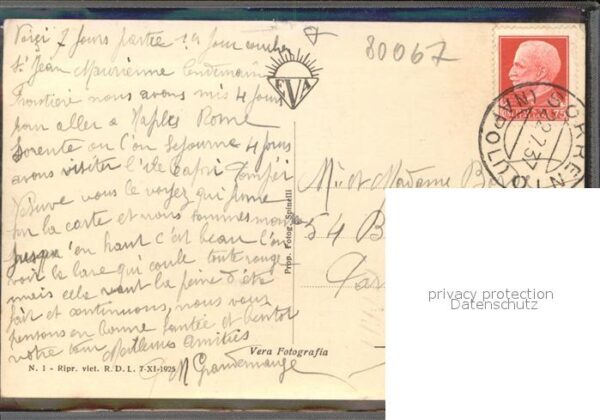 Voyez 7 jours partie 1er jour coucher
St Jean Maurienne lendemain
Frontière nous avons mis 4 jours
pour aller à Naples Rome
Sorente ou l'on séjourne 4 jours
avons visiter l'île Capri Pompéi
Vésuve vous le voyez qui fume
sur la carte et nous sommes monté
jusqu'en haut c'est beau l'on
voir la lave qui coule toute rouge
mais cela vaut la peine d'être
fait et continuons, nous vous
pensons en bonne santée et bientot
votre tour Meilleures amitiés
M Grandemange
N. 1 - Ripr. viet. R. D. L. 7-XI-1925
80067
EVA
Prop. Fotog. Spinelli
Vera Fotografia
M. et Madame B
54 B
Par
75
SORRENTO
(NAPOLI)
2.7.37
privacy protection
Datenschutz